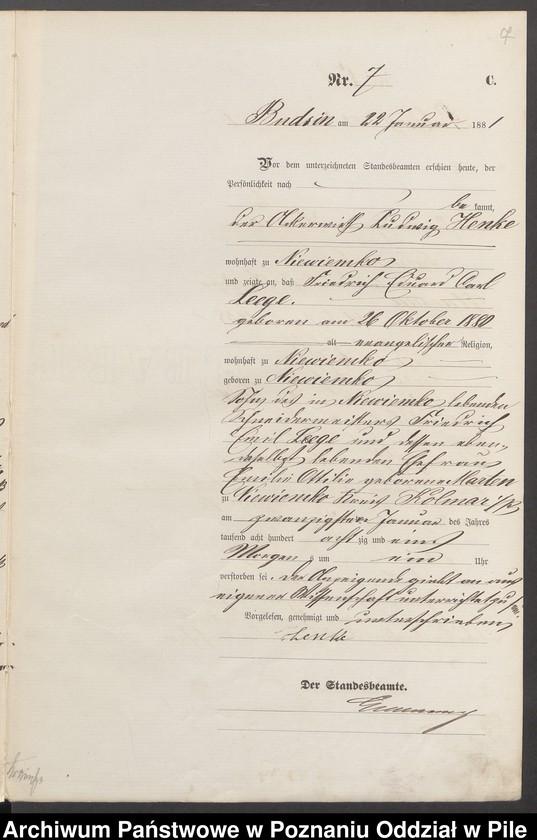 7
Nr. 7 C.
Budsin am 22 Januar 1881
Vor dem unterzeichneten Standesbeamten erschien heute, der
Persönlichkeit nach
be kannt,
der Ackerwirth Ludwig Henke
wohnhaft zu Niewiemko
und zeigte an, daß Friedrich Eduard Carl
Leege.
geboren am 26 Oktober 1880
alt evangelischer Religion,
wohnhaft zu Niewiemko
geboren zu Niewiemko
Sohn des in Niewiemko lebenden
Schneidermeisters Friedrich
Emil Leege und dessen eben-
daselbst lebenden Ehefrau
Emilie Ottilie geborene Marten
zu Niewiemko Kreis Kolmar i/P
am zwanzigsten Januar des Jahres
tausend acht hundert acht zig und eins
Morgens um ein Uhr
verstorben sei. der Anzeigende giebt an aus
eigener Wissenschaft unterrichtet zu sein.
Vorgelesen, genehmigt und unterschrieben
Henke
Der Standesbeamte.
Archiwum Państwowe w Poznaniu Oddział w Pile